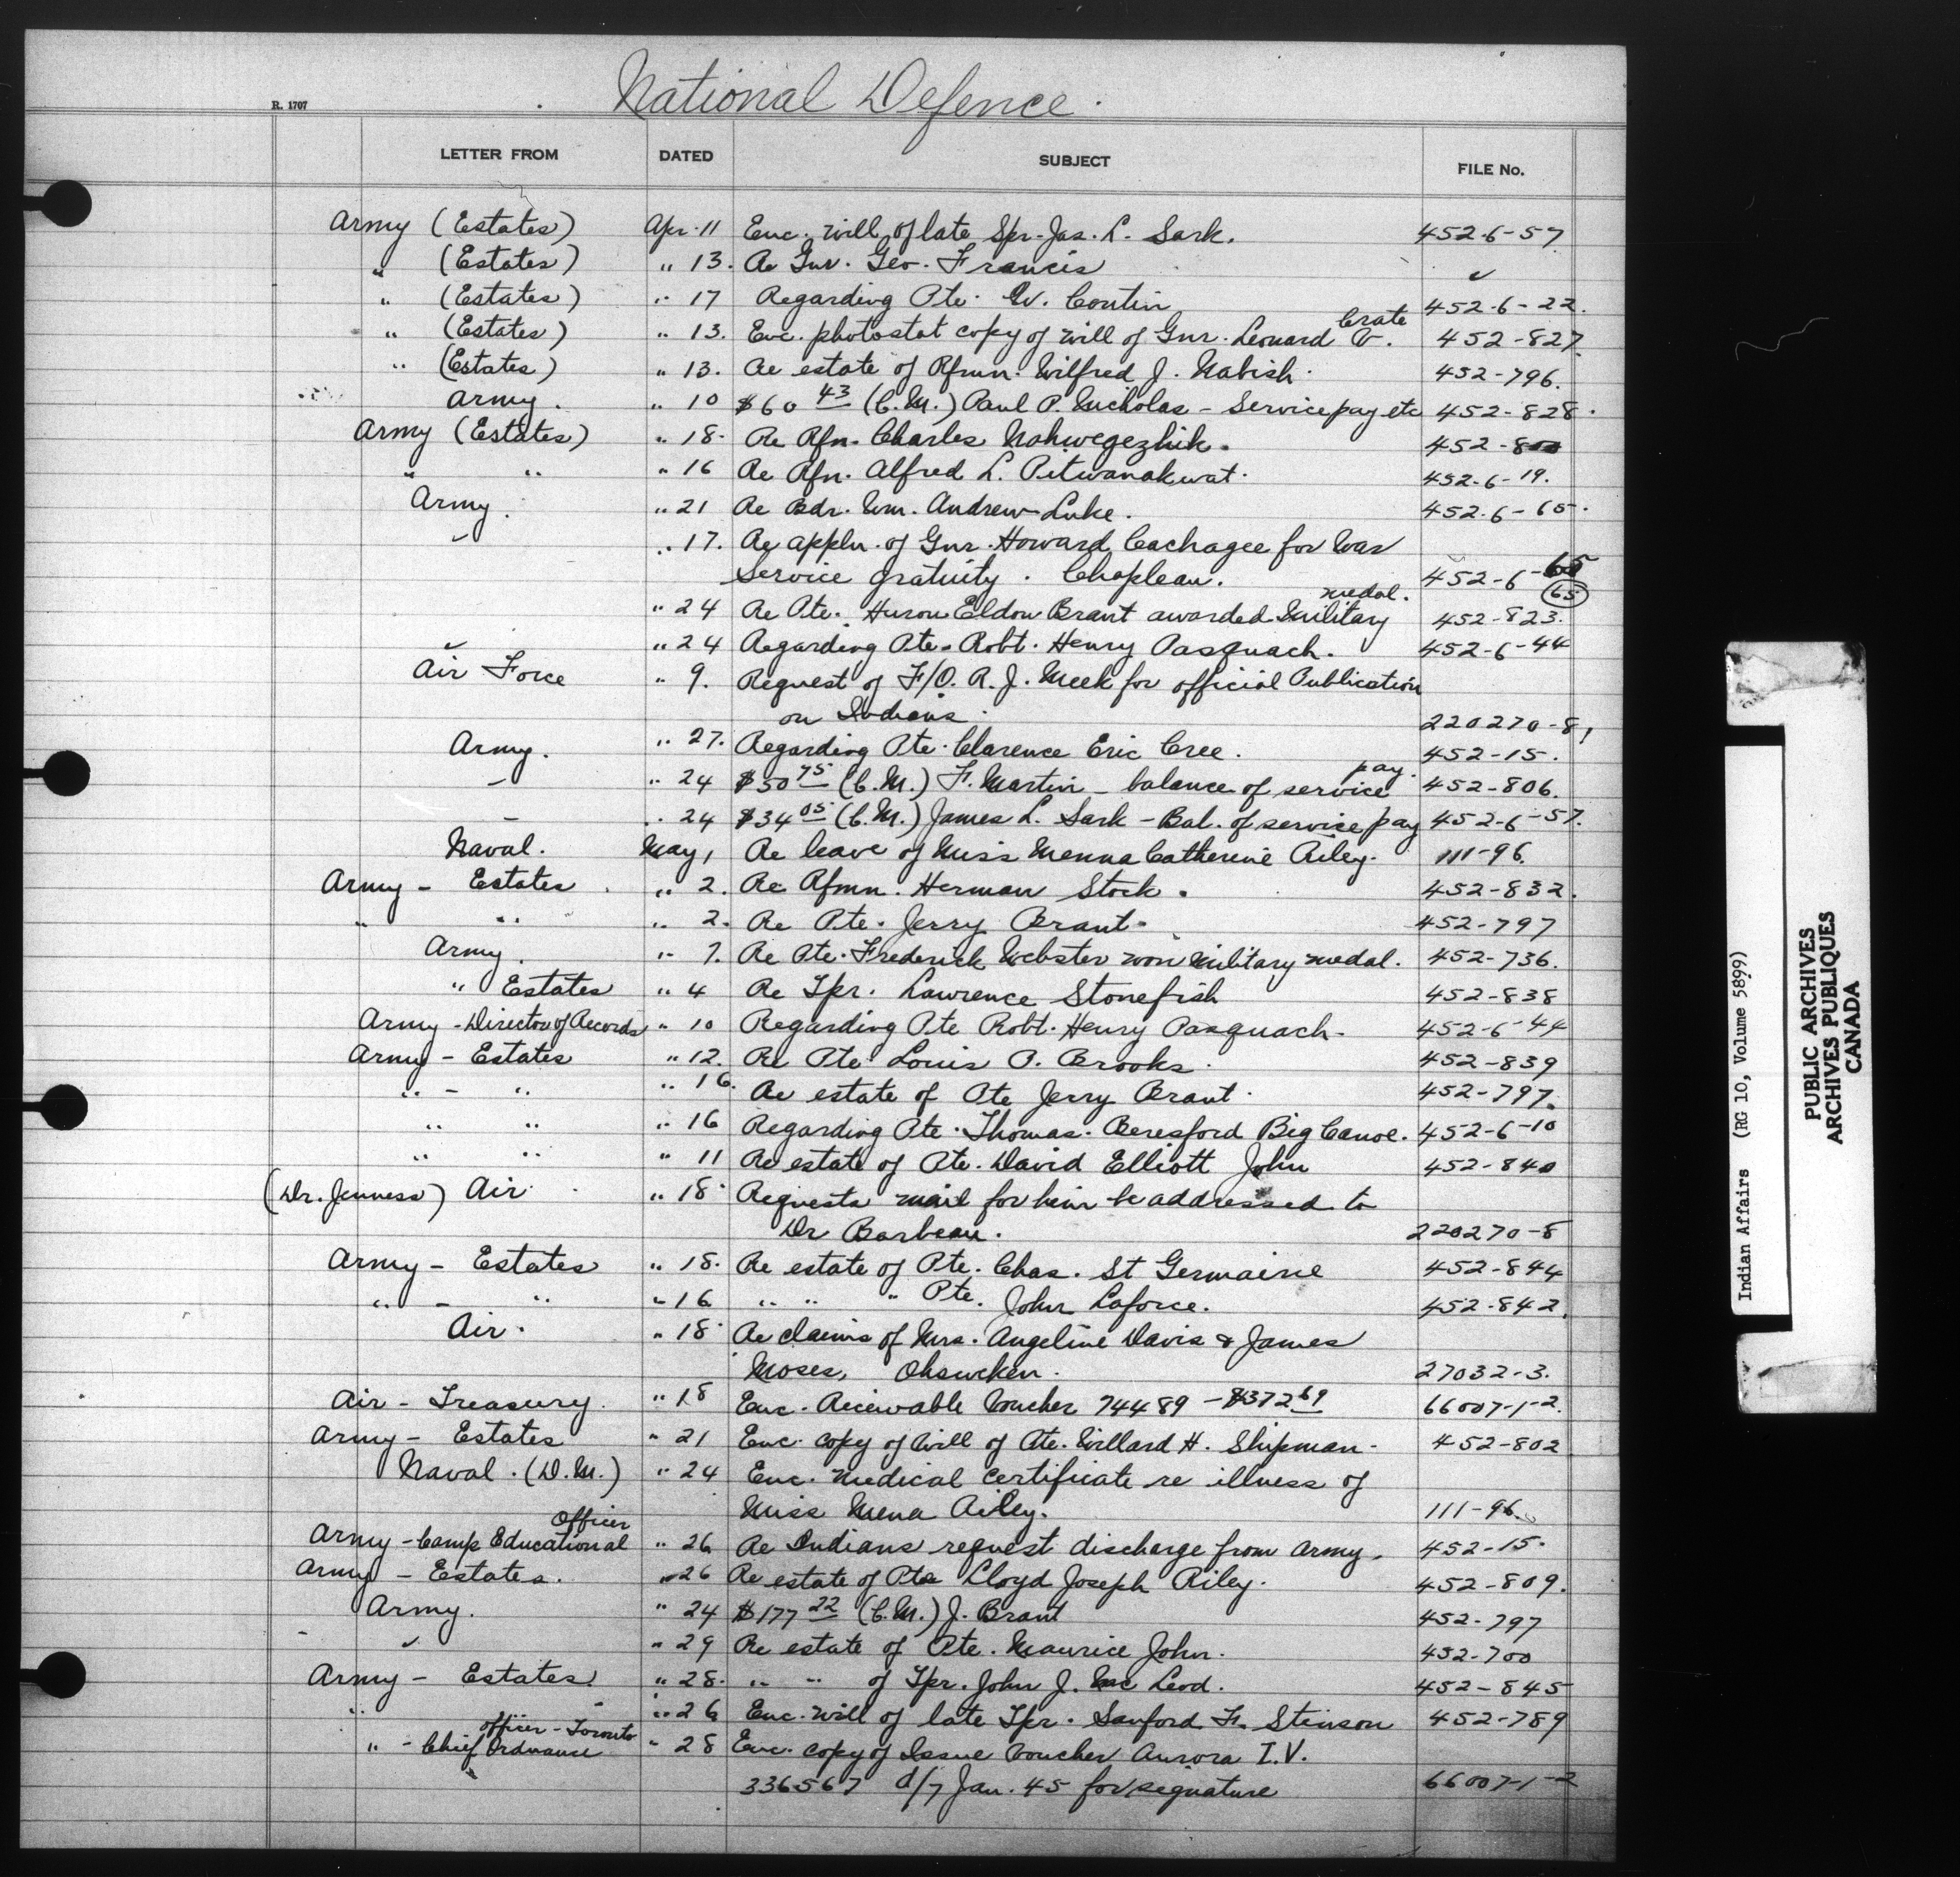 National Defence.
R. 1707
LETTER FROM DATED SUBJECT FILE No.
Army (Estates) Apr. 11 Enc. will of late Spr. Jas. L. Sark. 452-6-57
" (Estates) " 13. Re Gnr. Geo. Francis ✓
" (Estates) " 17 Regarding Pte. W. Contin 452-6-22.
" (Estates) " 13. Enc. photostat copy of will of Gnr. Leonard V. Crate 452-827.
" (Estates) " 13. Re estate of Rfmn. Wilfred J. Nabish. 452-796.
Army. " 10 $60 43 (C.M.) Paul P. Nicholas - Service pay etc 452-828.
Army (Estates) " 18. Re Rfn. Charles Nahwegezhik. 452-800
" " " 16 Re Rfn. Alfred L. Pitwanakwat. 452-6-19.
Army. " 21 Re Bdr. Wm. Andrew Luke. 452-6-65.
" " 17. Re appln. of Gnr. Howard Cachagee for War
Service gratuity. Chapleau. 452-6-65 (65)
" 24 Re Pte. Huron Eldon Brant awarded Military medal. 452-823.
" " 24 Regarding Pte. Robt. Henry Pasquach. 452-6-44
Air Force " 9. Request of F/O. R. J. Meek for official Publication
on Indians. 220270-8,
Army. " 27. Regarding Pte. Clarence Eric Cree. 452-15.
" " 24 $50 75 (C.M.) F. Martin - balance of service pay. 452-806.
" " 24 $34 05 (C.M.) James L. Sark - Bal. of service pay 452-6-57.
Naval. May 1 Re leave of Miss Menna Catherine Riley. 111-96.
Army - Estates. " 2. Re Rfmn. Herman Stock. 452-832.
" " " 2. Re Pte. Jerry Brant. 452-797
Army. " 7. Re Pte. Frederick Webster won Military medal. 452-736.
" Estates " 4 Re Tpr. Lawrence Stonefish 452-838
Army - Director of Records " 10 Regarding Pte Robt. Henry Pasquach. 452-6-44
Army - Estates " 12. Re Pte. Louis P. Brooks. 452-839
" - " " 16. Re estate of Pte Jerry Brant. 452-797.
" " " 16 Regarding Pte. Thomas. Beresford Big Canoe. 452-6-10
" " " 11 Re estate of Pte. David Elliott John 452-840
(Dr. Jenness) Air. " 18. Requests mail for him be addressed to
Dr Barbeau. 220270-8
Army - Estates " 18. Re estate of Pte. Chas. St Germaine 452-844
" - " " 16 " " " Pte. John Laforce. 452-842.
Air. " 18. Re claims of Mrs. Angeline Davis & James
Moses, Ohsweken. 27032-3.
Air - Treasury. " 18 Enc. Receivable Voucher 74489 - $372 69 66007-1-2.
Army - Estates " 21 Enc. copy of will of Pte. Willard H. Shipman. 452-802
Naval. (D.M.) " 24 Enc. medical certificate re illness of
Miss Mena Riley. 111-96.
Army - Camp Educational Officer " 26 Re Indians request discharge from army. 452-15.
Army - Estates. " 26 Re estate of Pte Lloyd Joseph Riley. 452-809.
Army. " 24 $177 22 (C.M.) J. Brant 452-797
" " 29 Re estate of Pte. Maurice John. 452-700
Army - Estates. " 28. " " of Tpr. John J. McLeod. 452-845
" " " 26 Enc. will of late Tpr. Sanford F. Stinson 452-789
" - Chief Ordnance officer - Toronto " 28 Enc. copy of Issue Voucher Aurora I.V.
336567 d/7 Jan. 45 for signature 66007-1-2
Indian Affairs (RG 10, Volume 5899)
PUBLIC ARCHIVES
ARCHIVES PUBLIQUES
CANADA